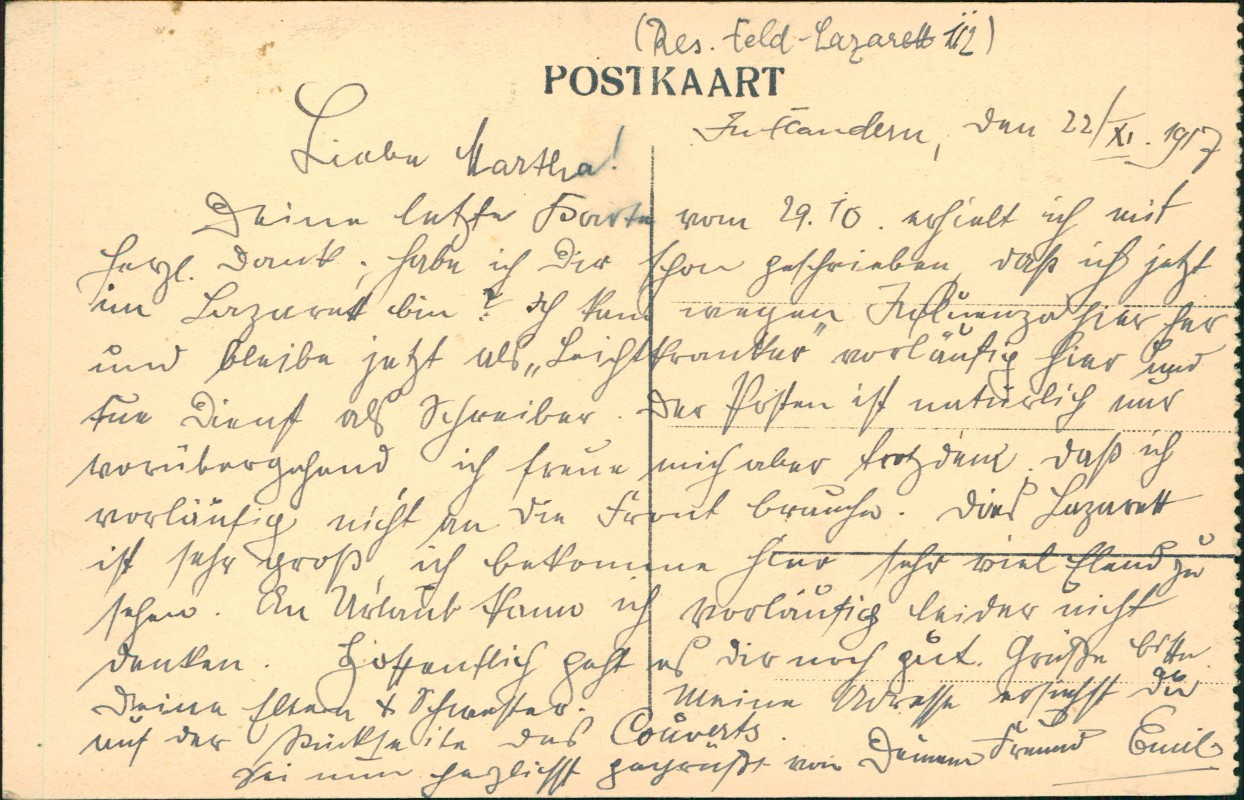 (Res. Feld-Lazarett 112)
POSTKAART
In Flandern, den 22/XI. 1917
Liebe Martha!
Deine letzte Karte vom 29.10. erhielt ich mit
herzl. Dank; habe ich Dir schon geschrieben, daß ich jetzt
im Lazarett bin? Ich kam wegen Influenza hier her
und bleibe jetzt als „Leichtkranker" vorläufig hier und
tue Dienst als Schreiber. Der Posten ist natürlich nur
vorübergehend, ich freue mich aber trotzdem, daß ich
vorläufig nicht an die Front brauche. Dies Lazarett
ist sehr groß, ich bekomme hier sehr viel Elend zu
sehen. An Urlaub kann ich vorläufig leider nicht
denken. Hoffentlich geht es dir noch gut. Grüße bitte
Deine Eltern & Schwester. Meine Adresse ersiehst du
auf der Rückseite des Couverts.
Sei nun herzlichst gegrüßt von Deinem Freund Emil